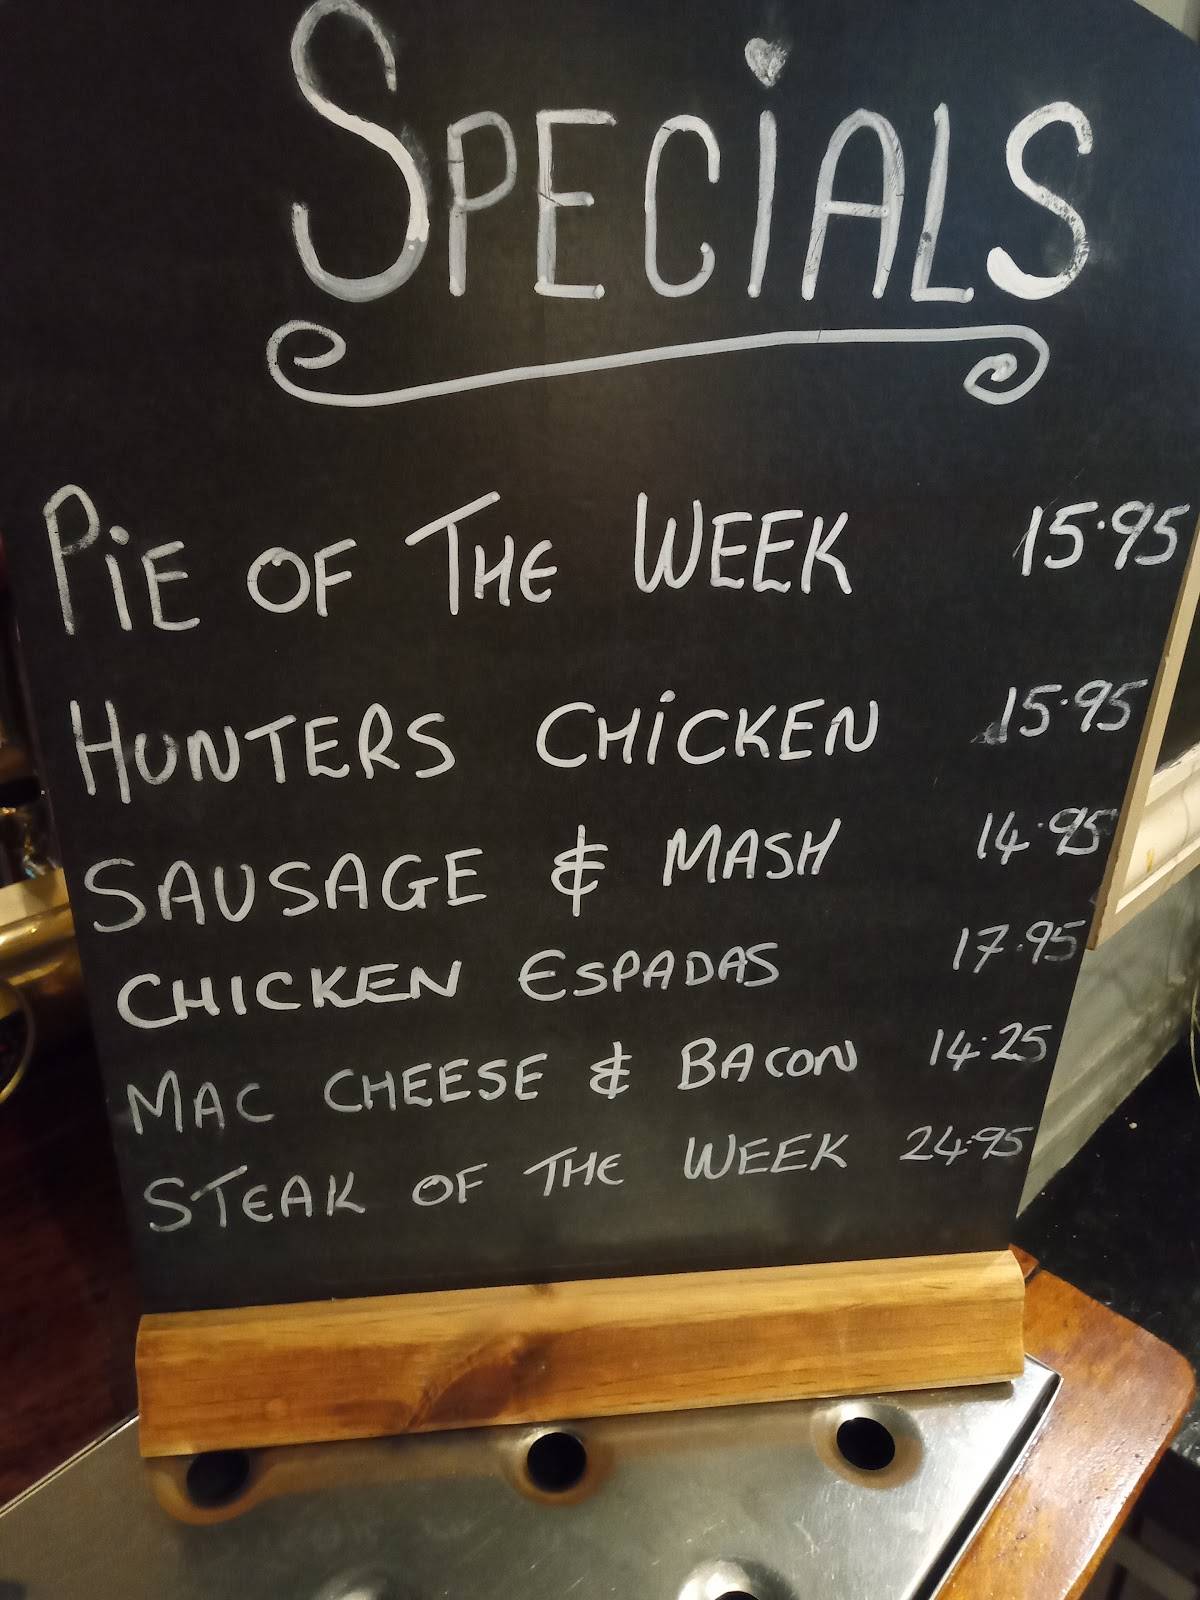 SPECiALS
PiE OF THE WEEK 15.95
HUNTERS CHiCKEN 15.95
SAUSAGE & MASH 14.95
CHICKEN ESPADAS 17.95
MAC CHEESE & BACON 14.25
STEAK OF THE WEEK 24.95